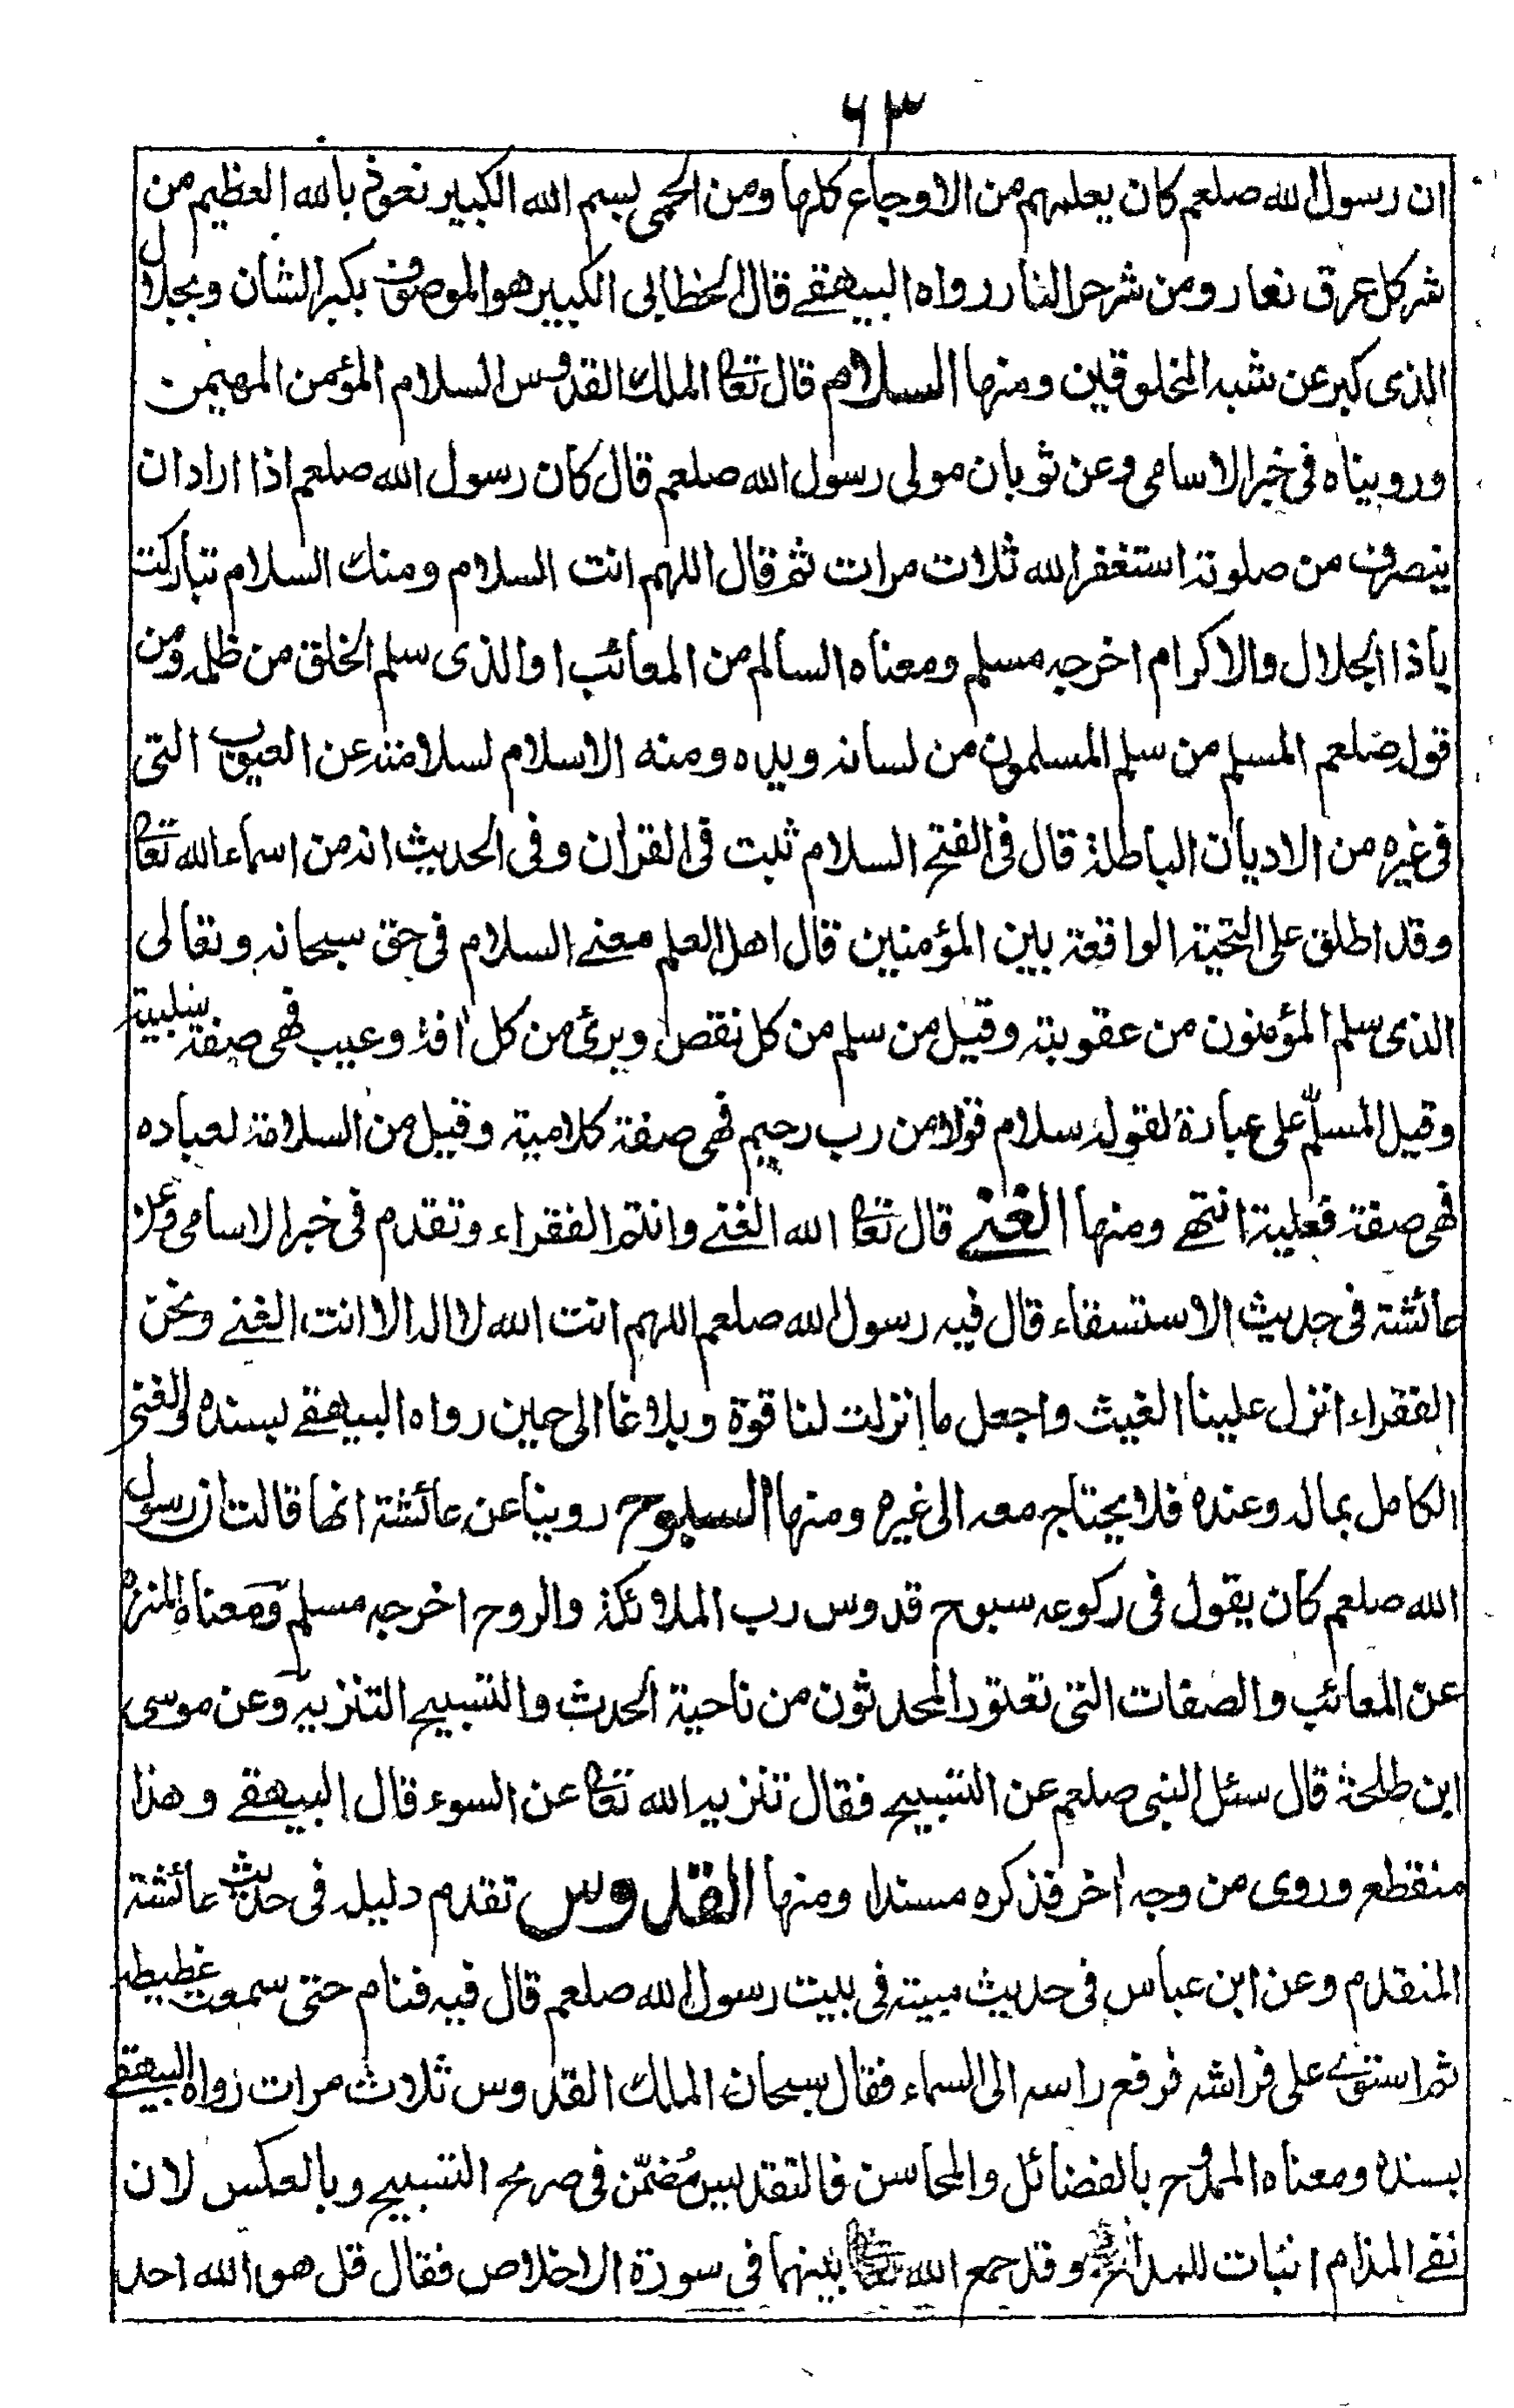 ٦٣
ان رسول الله صلعم كان يعلمهم من الاوجاع كلها ومن الحمى بسم الله الكبير نعوذ بالله العظيم من
شر كل عرق نعار ومن شر حر النار رواه البيهقے قال الخطابى الكبير هو الموصوف بكبر الشان وبجلال
الذى كبر عن شبه المخلوقين ومنها السلام قال تعا الملك القدوس السلام المؤمن المهيمن
ورويناه فى خبر الاسامى وعن ثوبان مولى رسول الله صلعم قال كان رسول الله صلعم اذا اراد ان
ينصرف من صلوته استغفر الله ثلاث مرات ثم قال اللهم انت السلام ومنك السلام تباركت
ياذا الجلال والاكرام اخرجه مسلم ومعناه السالم من المعائب او الذى سلم الخلق من ظلمه ومن
قوله صلعم المسلم من سلم المسلمون من لسانه ويده ومنه الاسلام لسلامته عن العيوب التى
فى غيره من الاديان الباطلة قال فى الفتح السلام ثبت فى القران وفى الحديث انه من اسماء الله تعا
وقد اطلق على التحية الواقعة بين المؤمنين قال اهل العلم معنے السلام فى حق سبحانه وتعالى
الذى سلم المؤمنون من عقوبته وقيل من سلم من كل نقص وبرئ من كل افة وعيب فهى صفة سلبية
وقيل المسلّم على عبادة لقوله سلام قولا من رب رحيم فهى صفة كلامية وقيل من السلامة لعباده
فهى صفة فعلية انتهے ومنها الغنے قال تعا الله الغنے وانتم الفقراء وتقدم فى خبر الاسامى وعن
عائشة فى حديث الاستسقاء قال فيه رسول الله صلعم اللهم انت الله لا اله الا انت الغنے ونحن
الفقراء انزل علينا الغيث واجعل ما انزلت لنا قوة وبلاغا الى حين رواه البيهقے بسنده والغنى
الكامل بماله وعنده فلا يحتاج معه الى غيره ومنها السبوح روينا عن عائشة انها قالت ان رسول
الله صلعم كان يقول فى ركوعه سبوح قدوس رب الملائكة والروح اخرجه مسلم ومعناه المنزه
عن المعائب والصفات التى تعتور المحدثون من ناحية الحدث والتسبيح التنزيه وعن موسى
ابن طلحة قال سئل النبى صلعم عن التسبيح فقال تنزيه الله تعا عن السوء قال البيهقے وهذا
منقطع وروى من وجه اخر فذكره مسندا ومنها القدوس تقدم دليله فى حديث عائشة
المتقدم وعن ابن عباس فى حديث مبيته فى بيت رسول الله صلعم قال فيه فنام حتى سمعت غطيطه
ثم استوے على فراشه فرفع راسه الى السماء فقال سبحان الملك القدوس ثلاث مرات رواه البيهقے
بسنده ومعناه الممدوح بالفضائل والمحاسن فالتقديس مُضمّن فى صريح التسبيح وبالعكس لان
نفے المذام اثبات للمدائح وقد جمع الله تعا بينهما فى سورة الاخلاص فقال قل هو الله احد